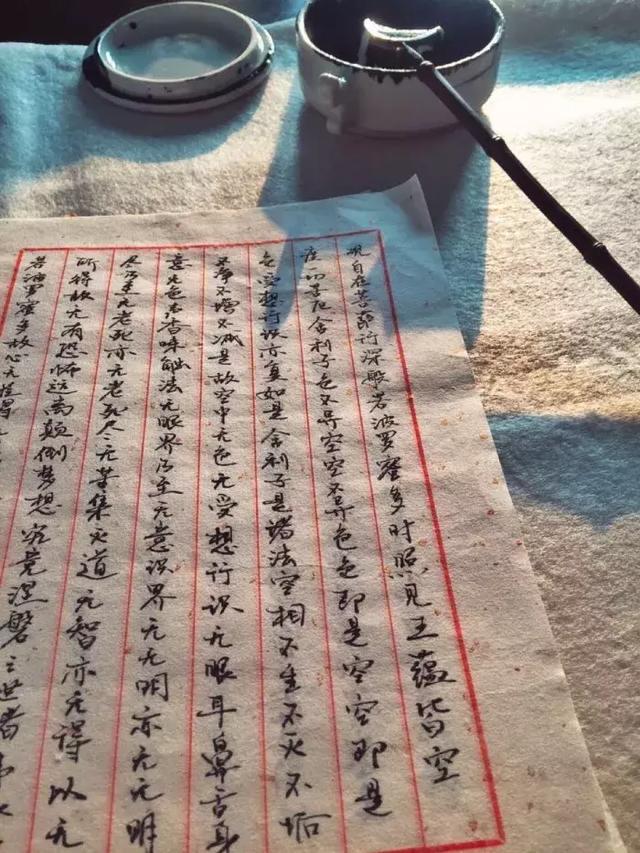 观自在菩萨行深般若波罗蜜多时照见五蕴皆空
度 苦厄舍利子色不异空空不异色色即是空空即是
色受想行识亦复如是舍利子是诸法空相不生不灭不垢
不净不增不减是故空中无色无受想行识无眼耳鼻舌身
意无色声香味触法无眼界乃至无意识界无无明亦无无明
尽乃至无老死亦无老死尽无苦集灭道无智亦无得以无
所得故无有恐怖远离颠倒梦想究竟涅槃三世诸
若波罗蜜多故心无挂碍